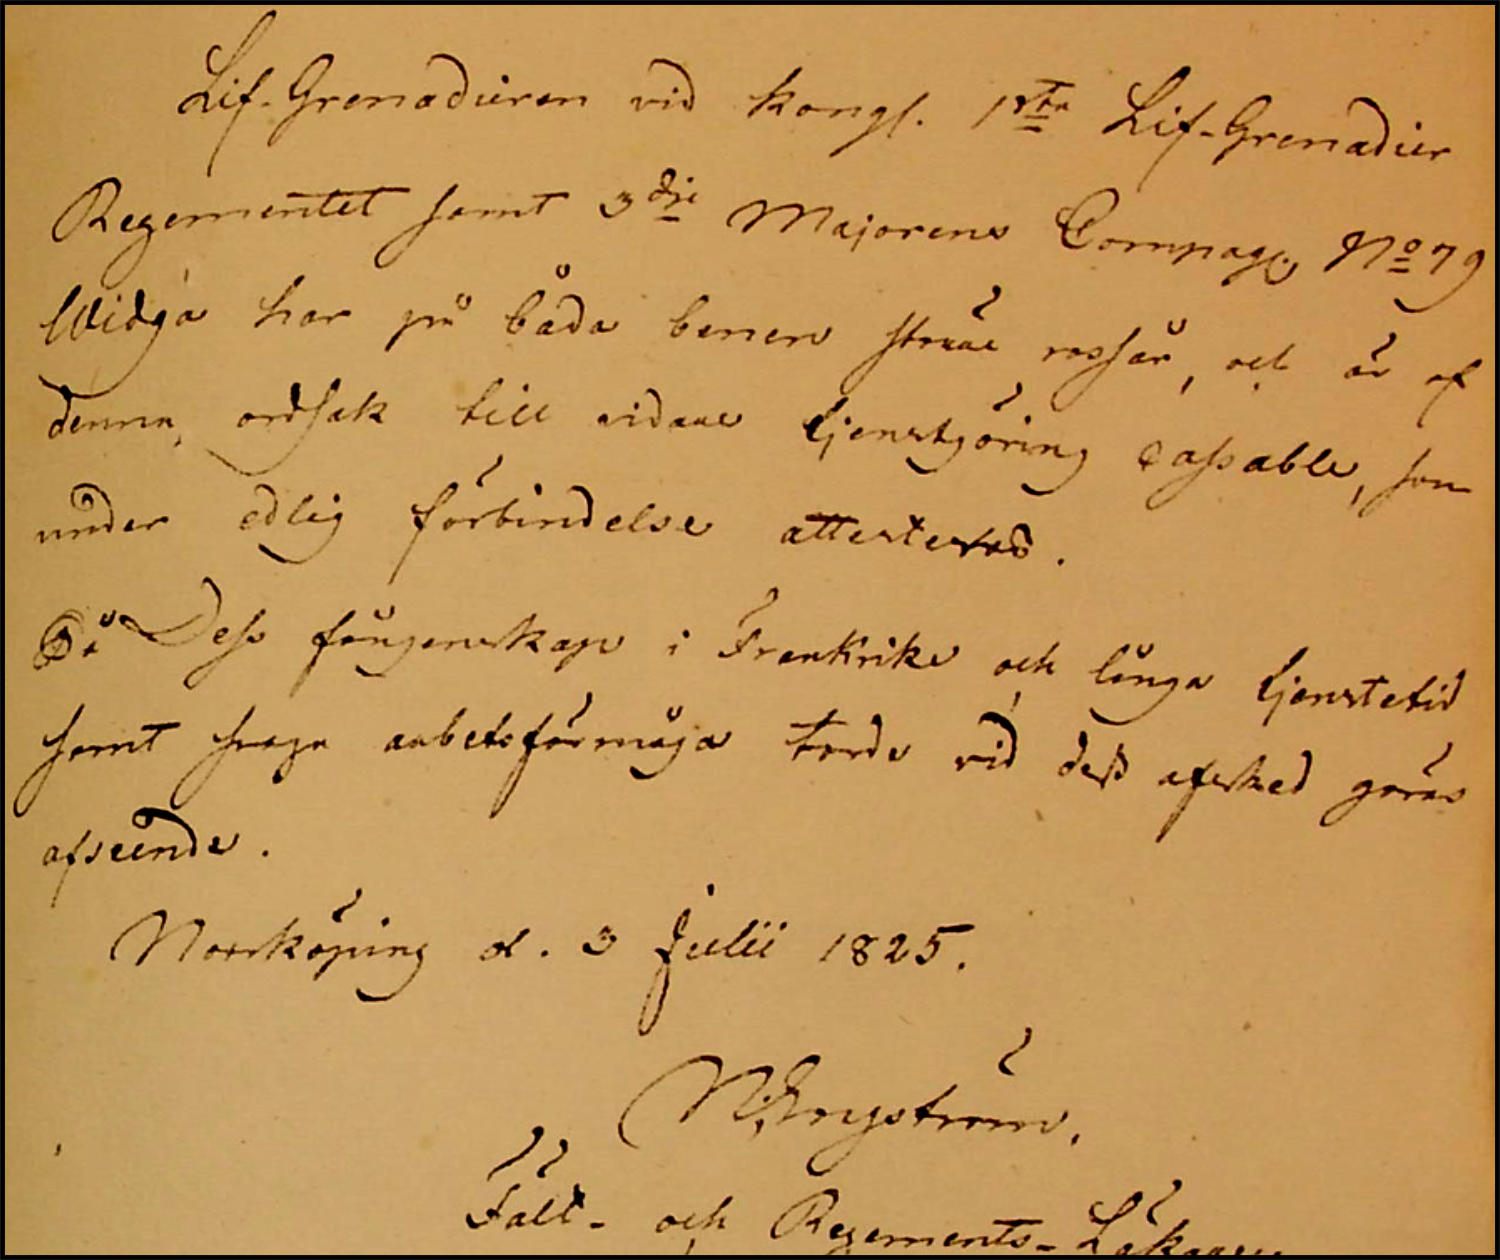 Lif-Grenadieren vid Kongl. 1sta Lif-Grenadier
Regementet samt 3dje Majorens Compagni No 79
Widga har på båda benen stora rossår, och är af
denna ordsak till vidare tjenstgöring cassable, som
under edlig förbindelse attesteras.
På Dess fångenskap i Frankrike och långa tjenstetid
samt svaga arbetsförmåga torde vid dess afsked göras
afseende.
Norrköping d. 3 Julii 1825.
N. Engström.
Fält- och Regements-Läkare